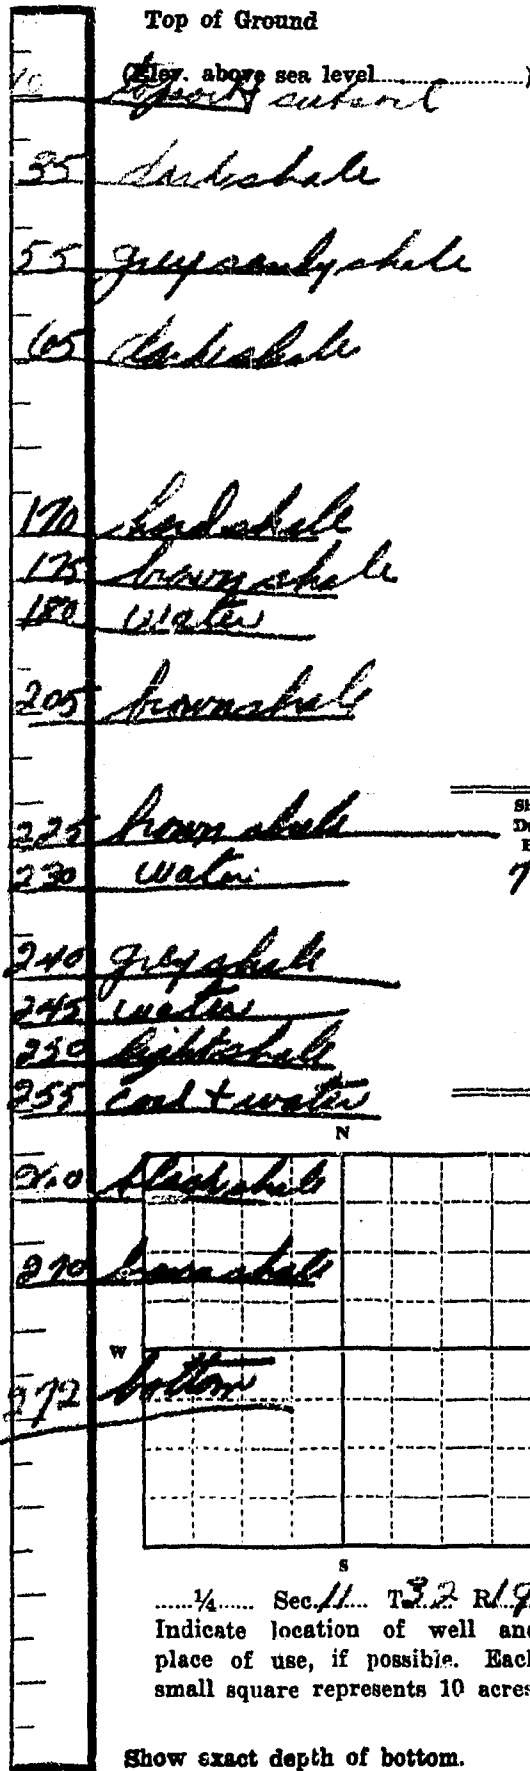 Top of Ground
(Elev. above sea level....................)
10 topsoil + subsoil
35 dark shale
55 grey sandy shale
65 dark shale
170 hard shale
175 brown shale
180 water
205 brown shale
225 brown shale
230 water
240 grey shale
245 water
250 light shale
255 coal + water
N
260 black shale
270 brown shale
W
272 bottom
S
......¼...... Sec. 11 T. 32 R. 19
Indicate location of well and
place of use, if possible. Each
small square represents 10 acres
Show exact depth of bottom.